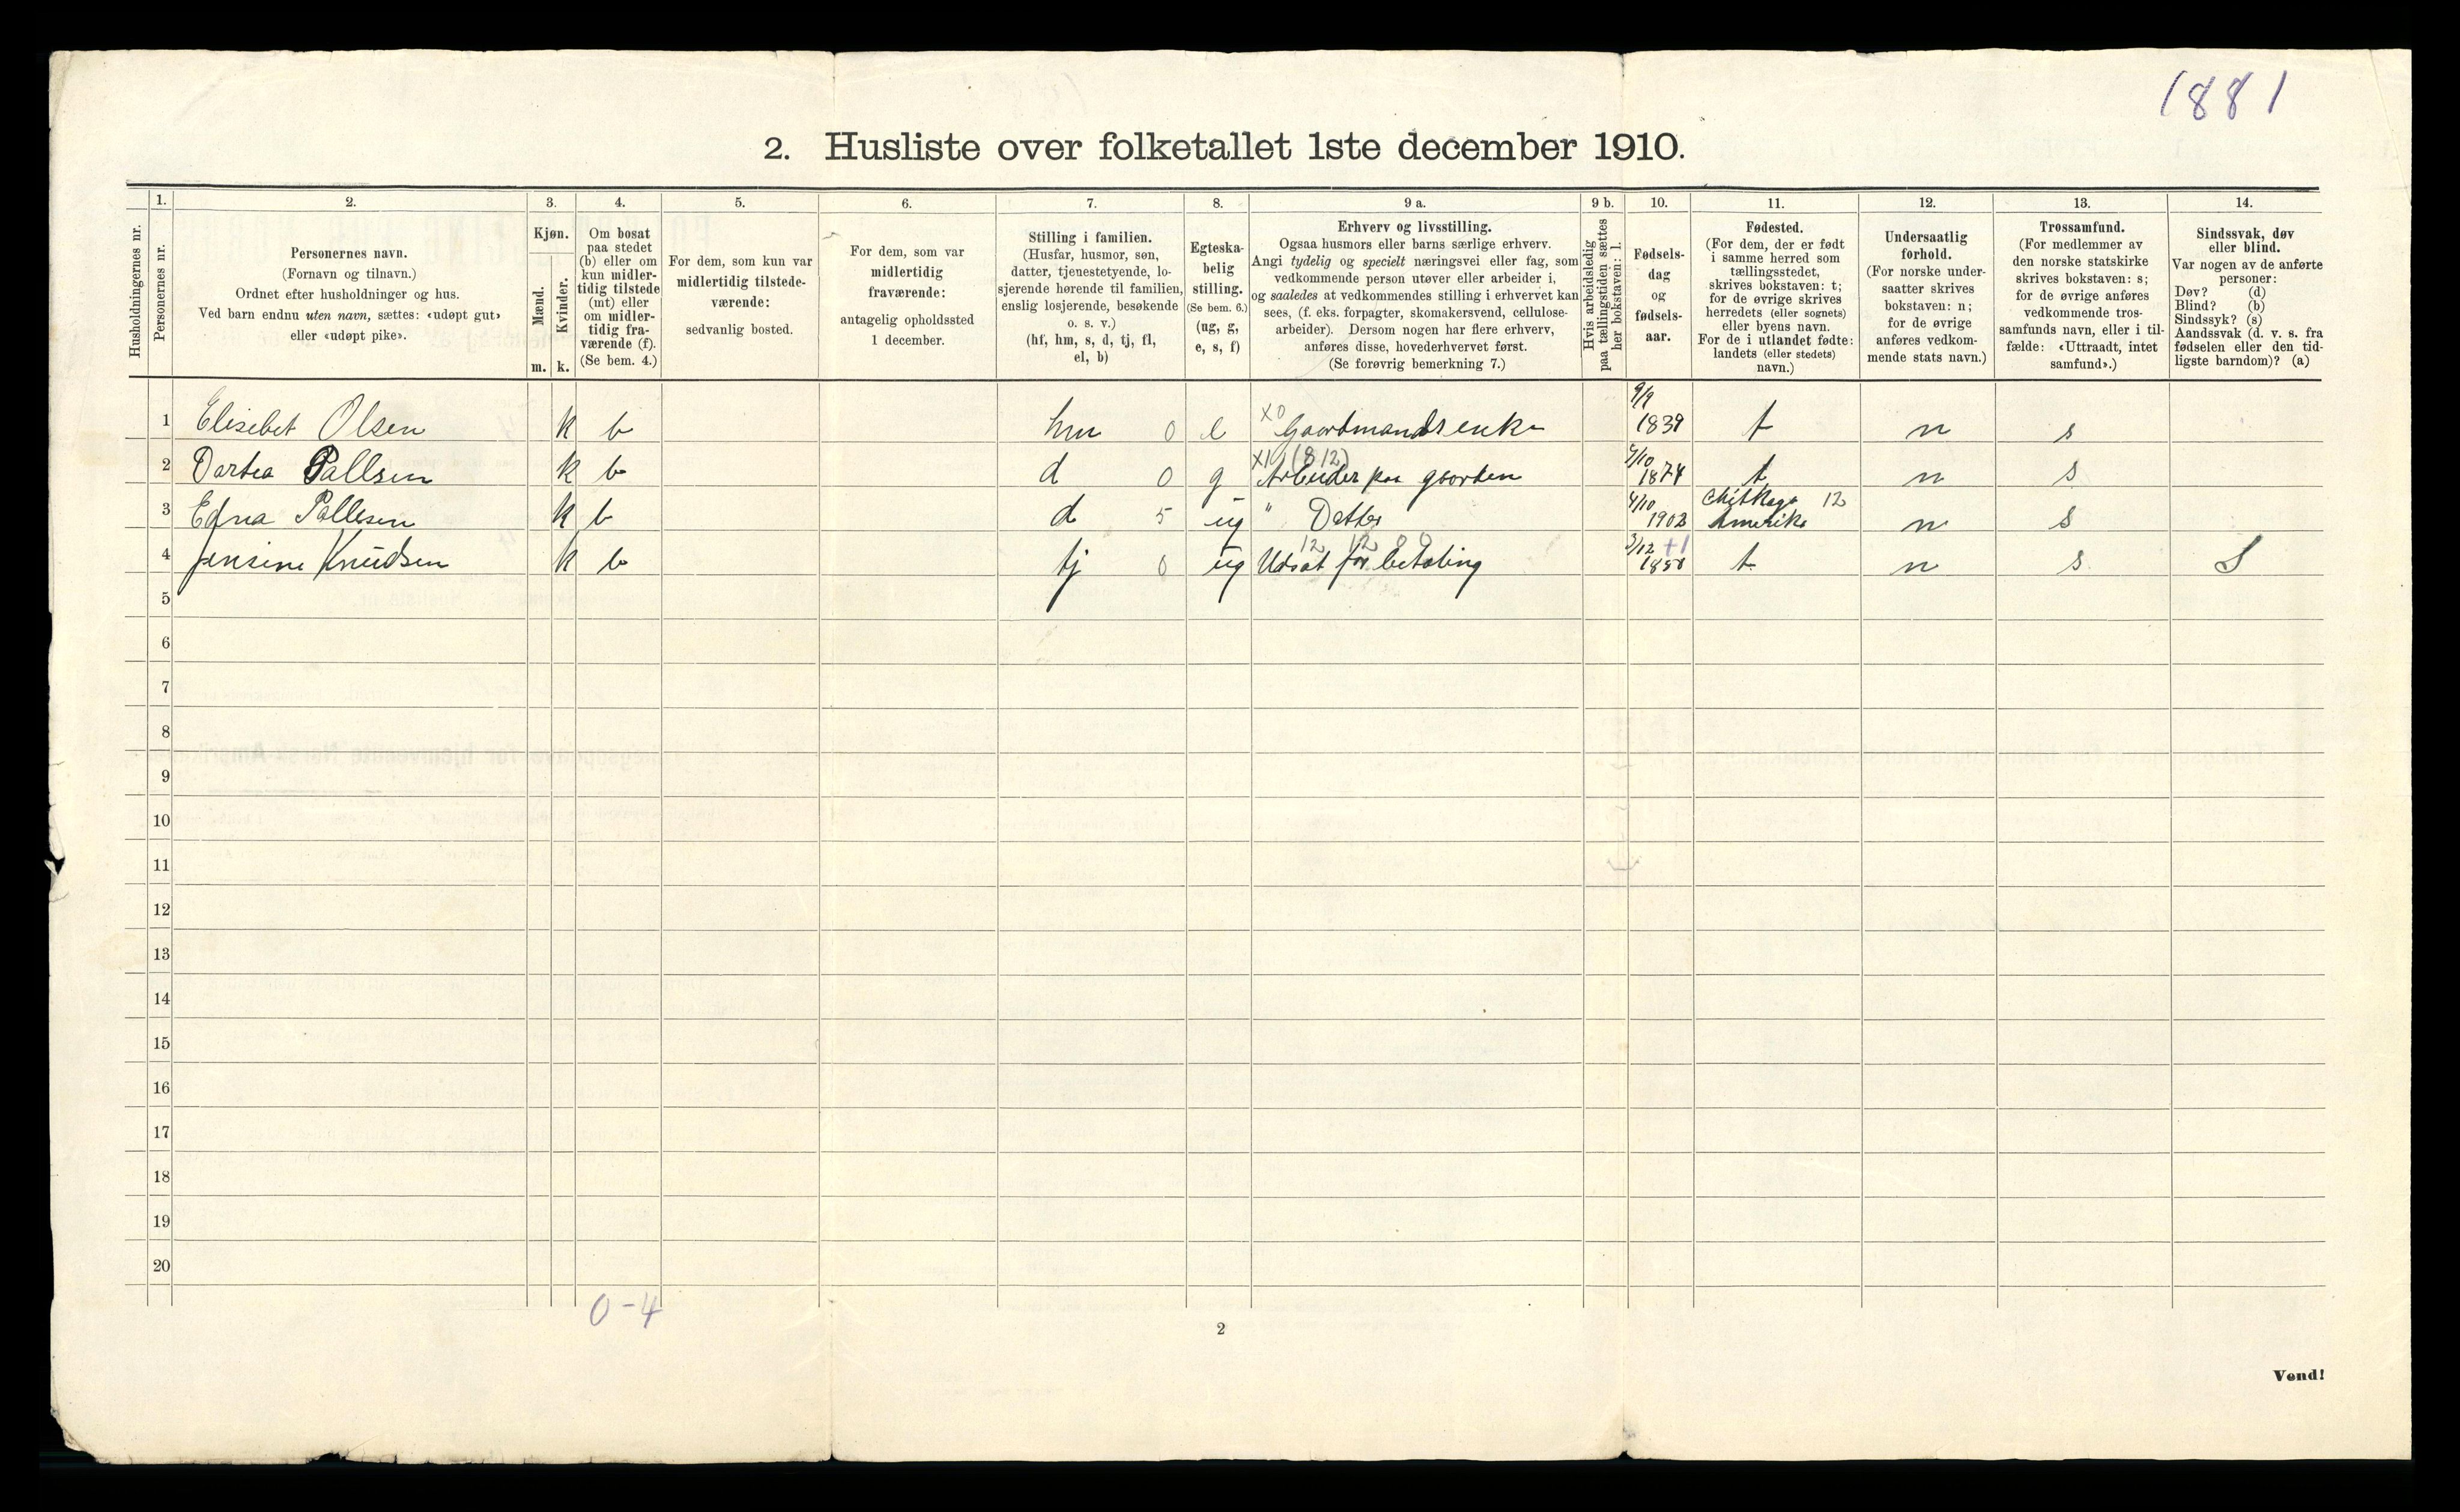 1881
2. Husliste over folketallet 1ste december 1910.
Husholdningernes nr.
1.
Personernes nr.
2.
Personernes navn.
(Fornavn og tilnavn.)
Ordnet efter husholdninger og hus.
Ved barn endnu uten navn, sættes: «udøpt gut»
eller «udøpt pike».
3.
Kjøn.
Mænd.
Kvinder.
m.
k.
4.
Om bosat
paa stedet
(b) eller om
kun midler-
tidig tilstede
(mt) eller
om midler-
tidig fra-
værende (f).
(Se bem. 4.)
5.
For dem, som kun var
midlertidig tilstede-
værende:
sedvanlig bosted.
6.
For dem, som var
midlertidig
fraværende:
antagelig opholdssted
1 december.
7.
Stilling i familien.
(Husfar, husmor, søn,
datter, tjenestetyende, lo-
sjerende hørende til familien,
enslig losjerende, besøkende
o. s. v.)
(hf, hm, s, d, tj, fl,
el, b)
8.
Egteska-
belig
stilling.
(Se bem. 6.)
(ug, g,
e, s, f)
9 a.
Erhverv og livsstilling.
Ogsaa husmors eller barns særlige erhverv.
Angi tydelig og specielt næringsvei eller fag, som
vedkommende person utøver eller arbeider i,
og saaledes at vedkommendes stilling i erhvervet kan
sees, (f. eks. forpagter, skomakersvend, cellulose-
arbeider). Dersom nogen har flere erhverv,
anføres disse, hovederhvervet først.
(Se forøvrig bemerkning 7.)
9 b.
Hvis arbeidsledig
paa tællingstiden sættes
her bokstaven: l.
10.
Fødsels-
dag
og
fødsels-
aar.
11.
Fødested.
(For dem, der er født
i samme herred som
tællingsstedet,
skrives bokstaven: t;
for de øvrige skrives
herredets (eller sognets)
eller byens navn.
For de i utlandet fødte:
landets (eller stedets)
navn.)
12.
Undersaatlig
forhold.
(For norske under-
saatter skrives
bokstaven: n;
for de øvrige
anføres vedkom-
mende stats navn.)
13.
Trossamfund.
(For medlemmer av
den norske statskirke
skrives bokstaven: s;
for de øvrige anføres
vedkommende tros-
samfunds navn, eller i til-
fælde: «Uttraadt, intet
samfund».)
14.
Sindssvak, døv
eller blind.
Var nogen av de anførte
personer:
Døv? (d)
Blind? (b)
Sindssyk? (s)
Aandssvak (d. v. s. fra
fødselen eller den tid-
ligste barndom)? (a)
X0 9/9
1 Elisebet Olsen k b hm 0 e Gaordmands enke 1839 t n s
X1 (812) 5/10
2 Dortea Pallsen k b d 0 g Arbeider paa gaorden 1874 t n s
4/10 Chitkago 12
3 Edna Pallesen k b d 5 ug " Datter 1902 Amerika n s
12 12 0 0 3/12 +1
4 Jensine Knudsen k b tj 0 ug Udsat for betaling 1850 t n s S
5
6
7
8
9
10
11
12
13
14
15
16
17
18
19
20
0-4
2
Vend!